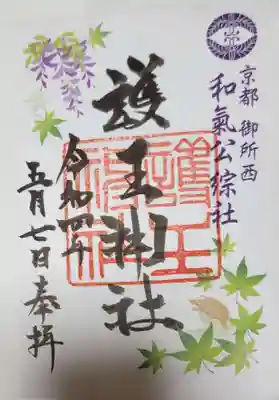 京都 御所西
和氣公綜社
護王神社
護王神社
令和四年
五月七日奉拝